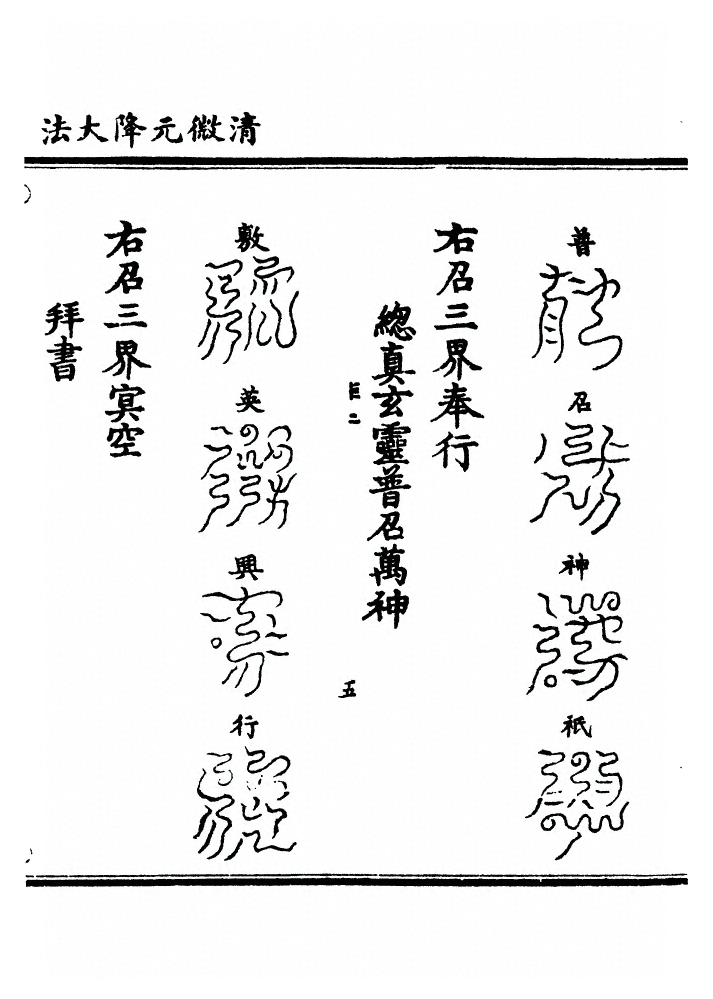 清微元降大法
普
召
神
祇
右召三界奉行
總真玄靈普召萬神
巨二
五
敷
英
興
行
右召三界㝠空
拜書